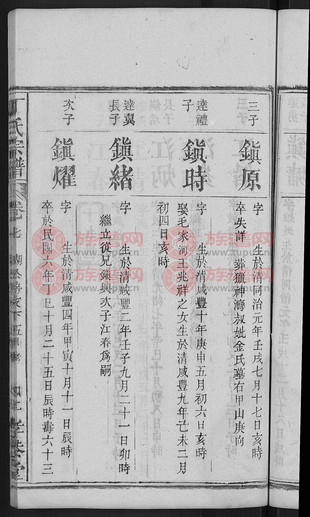 三子
鎮原
字 生於清同治元年壬戌七月十七日亥時
卒失詳 葬獵神灣叔妣金氏墓右甲山庚向
達禮子
鎮時
字 生於清咸豐十年庚申五月初六日亥時
娶毛家河王兆祥之女生於清咸豐九年己未二月
初四日亥時
達翼長子
鎮緒
字 生於清咸豐二年壬子九月二十一日卯時
繼立後兄鎮興次子江春為嗣
次子
鎮燿
字 生於清咸豐四年甲寅十月十一日辰時
卒於民國六年丁巳十月二十五日辰時壽六十三
氏宗譜
卷七